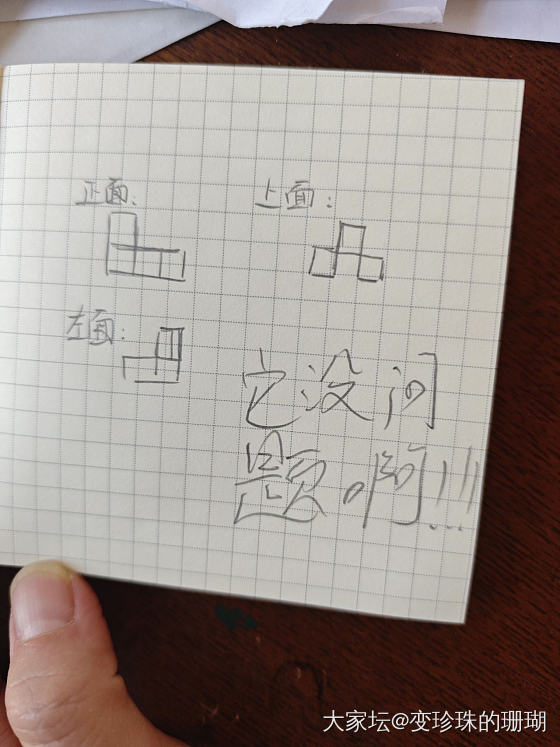 正面: 上面:
左面:
它没问
题啊!!!
大家坛@变珍珠的珊瑚